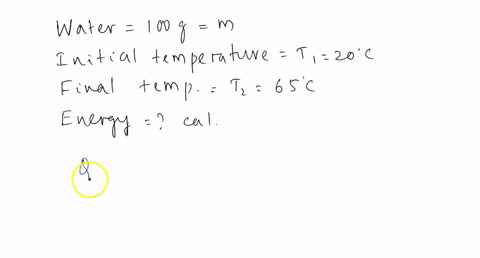 Water = 100 g = m
Initial temperature = T₁ = 20°C
Final temp. = T₂ = 65°C
Energy = ? cal.
Q